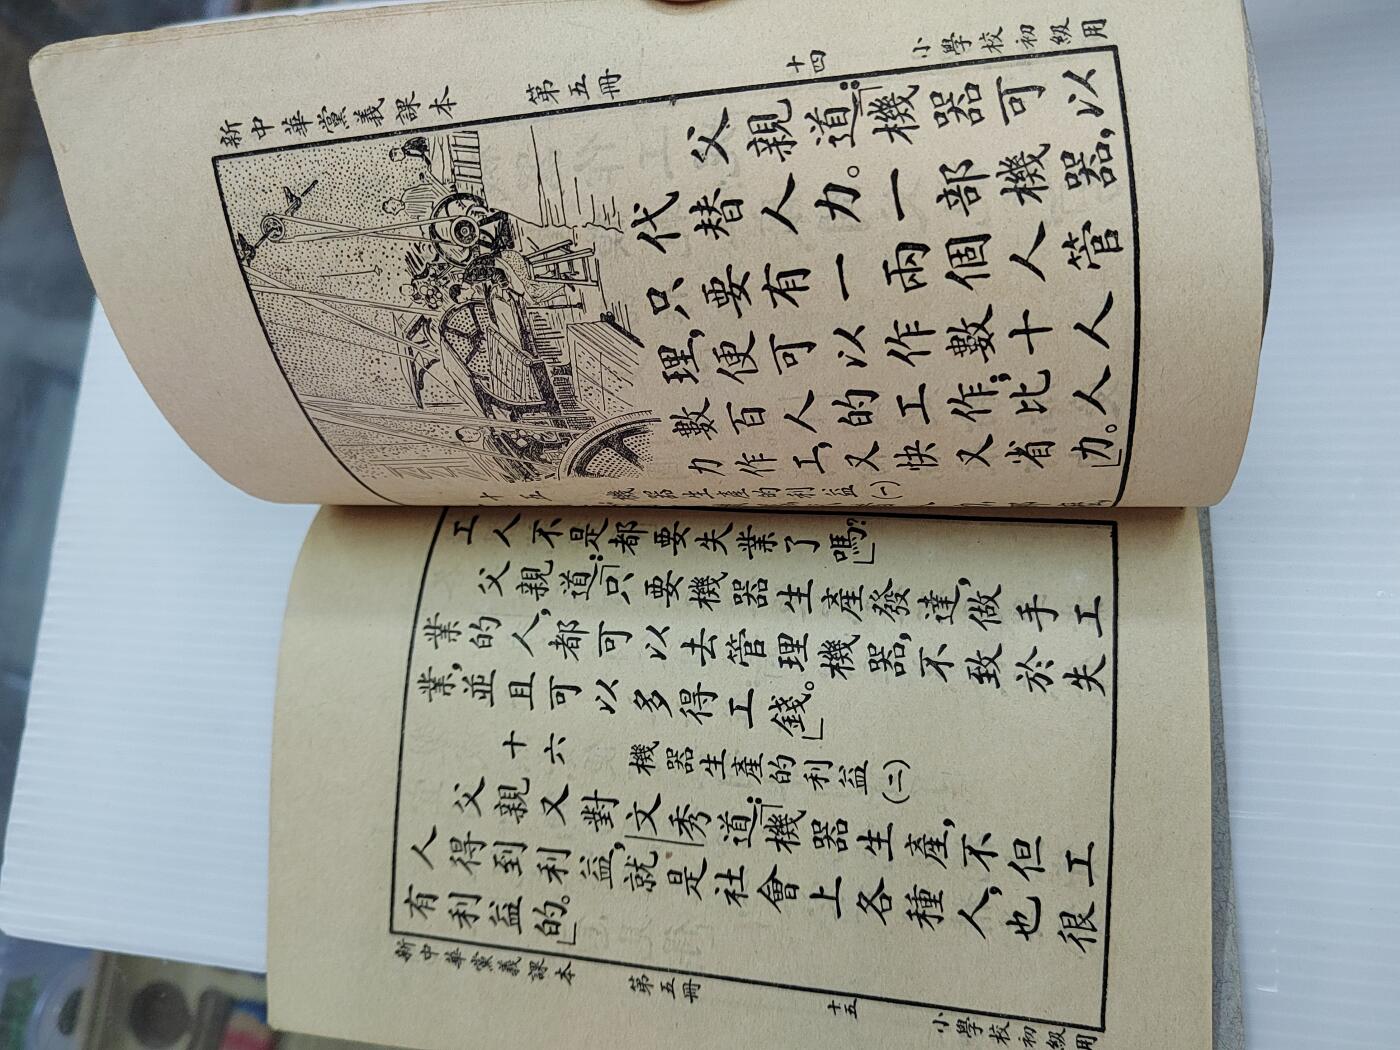 新中華黨義課本 第五冊 十四 小學校初級用
父親道：「機器可以
代替人力。一部機器，
只要有一兩個人管
理，便可以作數十人
數百人的工作；比人
力作工，又快又省力。」
十五 機器生產的利益（一）
工人不是都要失業了嗎？」
父親道：「只要機器生產發達，做手工
業的人，都可以去管理機器，不致於失
業，並且可以多得工錢。」
十六 機器生產的利益（二）
父親又對文秀道：「機器生產，不但工
人得到利益，就是社會上各種人，也很
有利益的。」
新中華黨義課本 第五冊 十五 小學校初級用